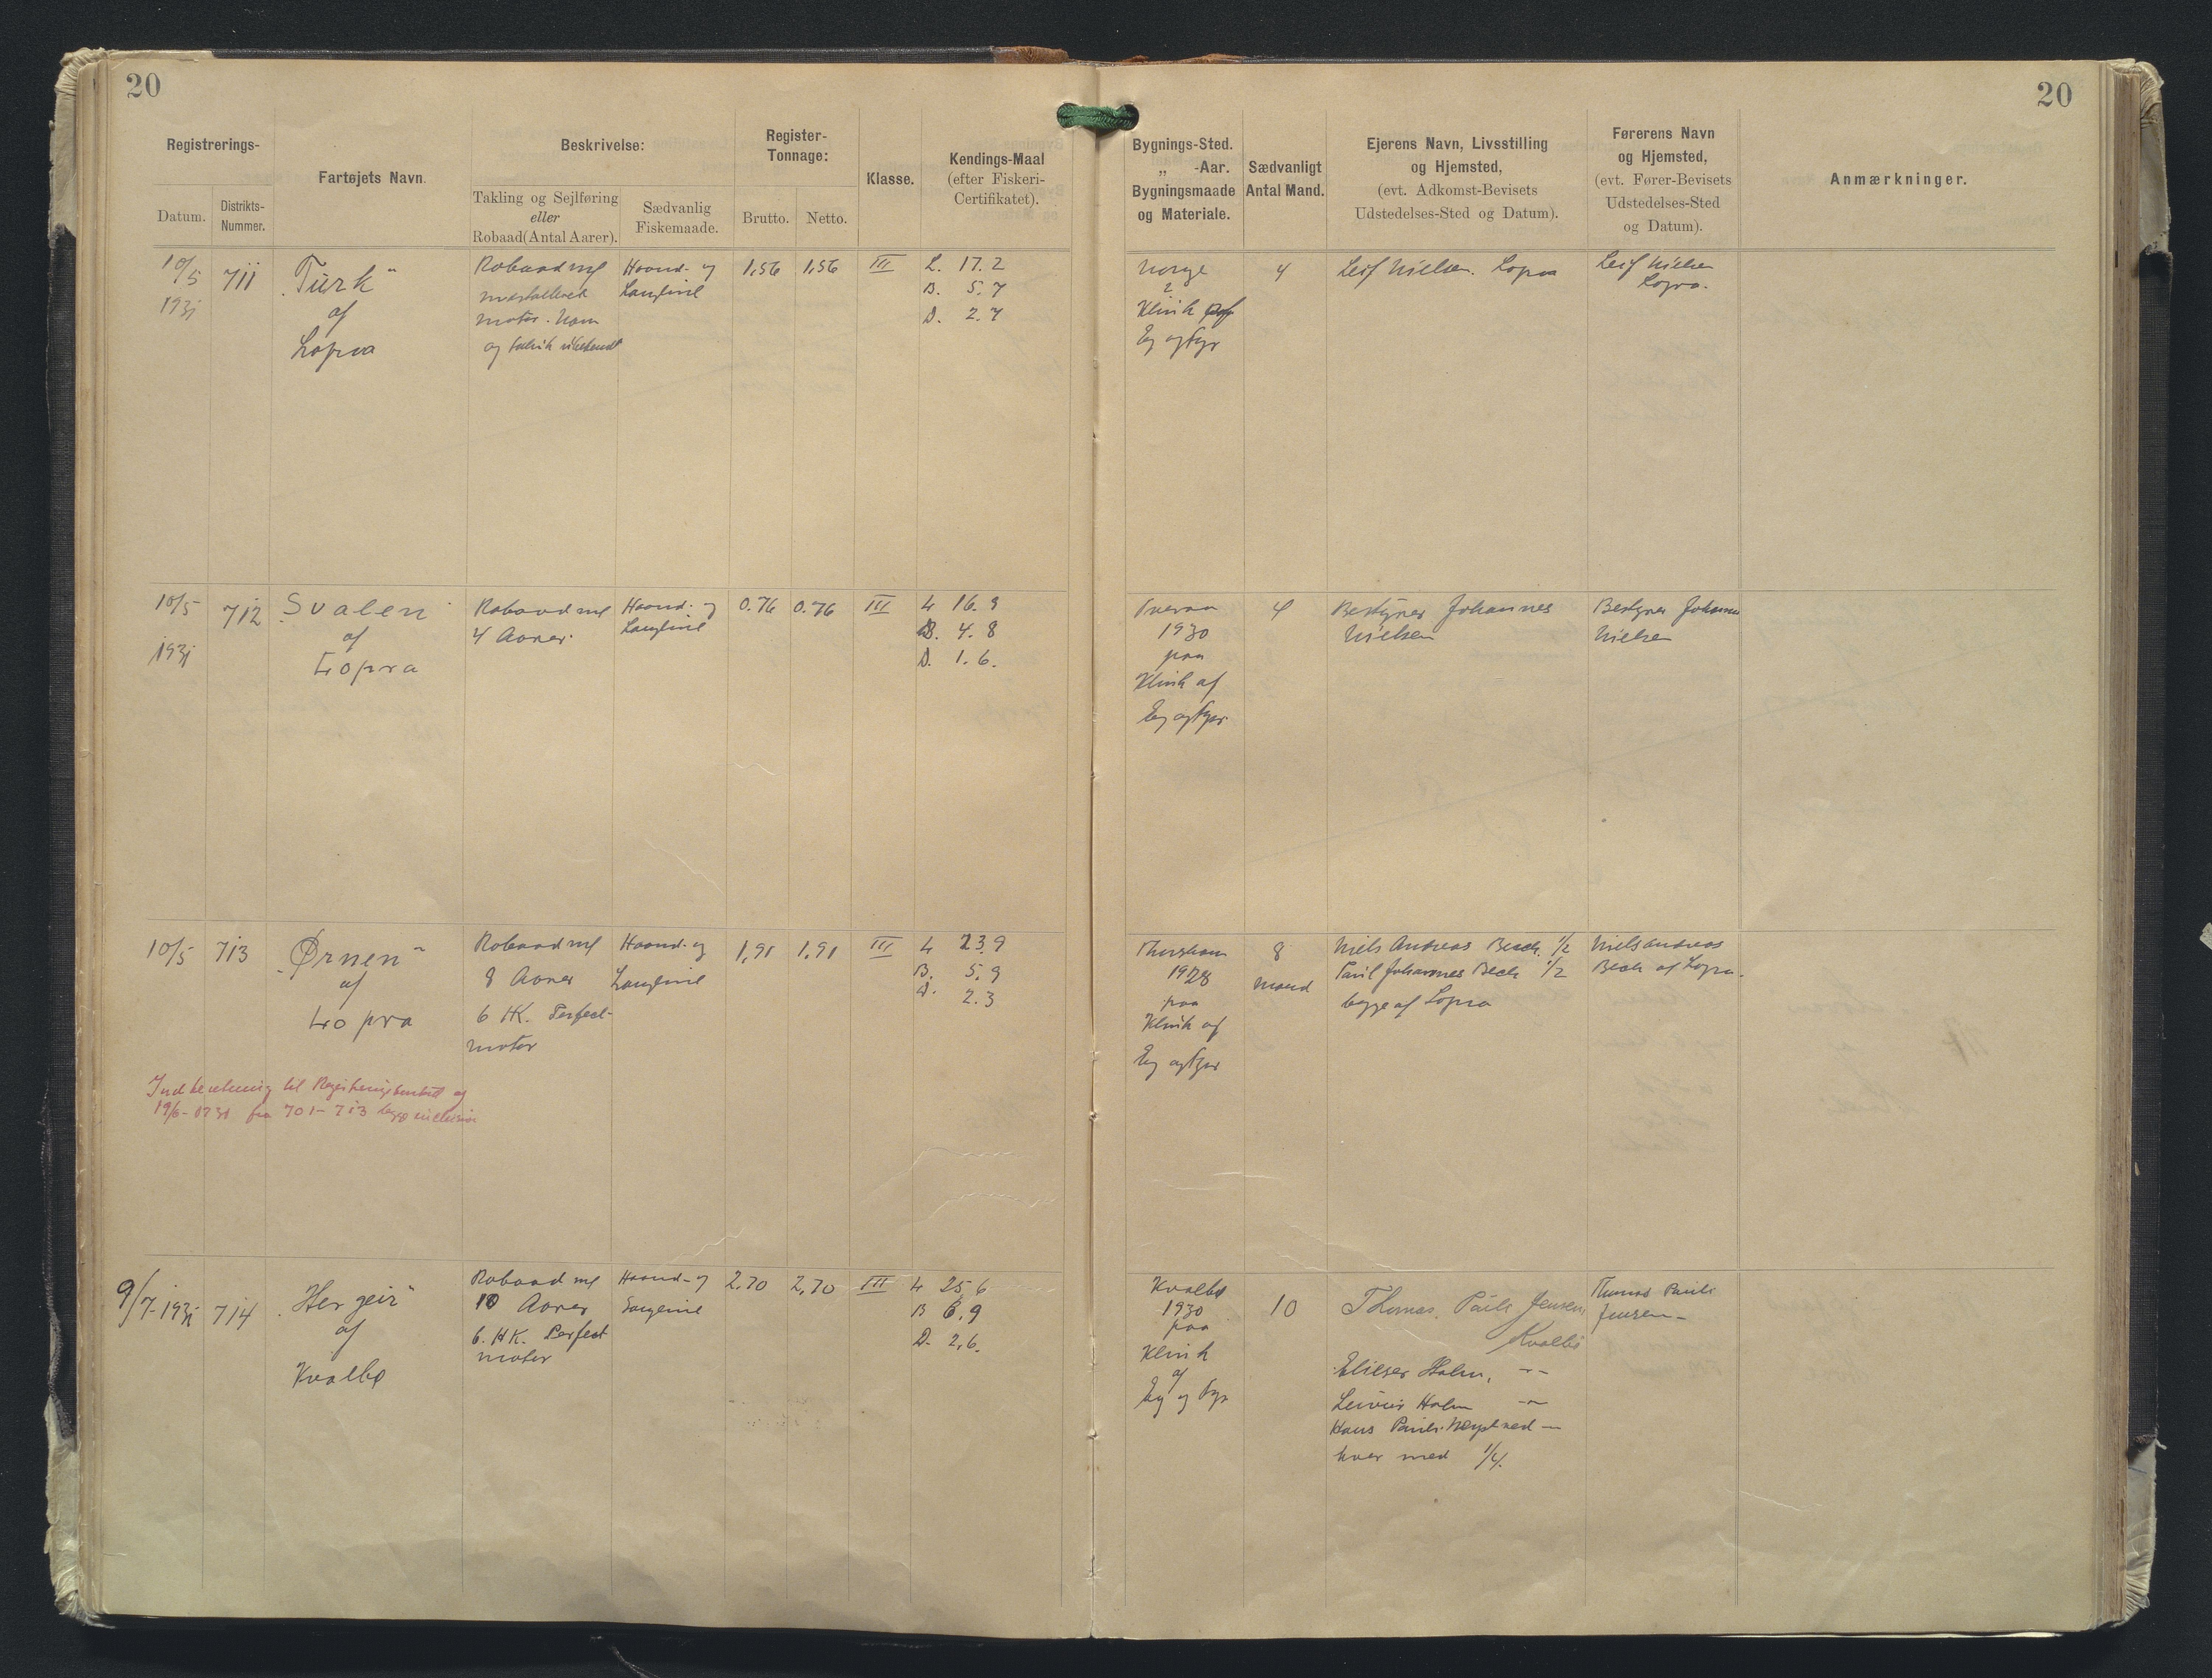 20
20
Registrerings-
Datum.
Distrikts-
Nummer.
Fartøjets Navn.
Beskrivelse:
Takling og Sejlføring
eller
Robaad(Antal Aarer).
Sædvanlig
Fiskemaade.
Register-
Tonnage:
Brutto.
Netto.
Klasse.
Kendings-Maal
(efter Fiskeri-
Certifikatet).
Bygnings-Sted.
„ -Aar.
Bygningsmaade
og Materiale.
Sædvanligt
Antal Mand.
Ejerens Navn, Livsstilling
og Hjemsted,
(evt. Adkomst-Bevisets
Udstedelses-Sted og Datum).
Førerens Navn
og Hjemsted,
(evt. Fører-Bevisets
Udstedelses-Sted
og Datum).
Anmærkninger.
10/5
1931
711
„Turk“
af
Lopra
Robaad m/
installeret
motor. Navn
og fabrik ubekendt
Haand- og
Langline
1,56
1,56
III
L. 17.2
B. 5.7
D. 2.7
Norge
?
Klink
Eg og Fyr
4
Leif Nielsen. Lopra
Leif Nielsen
Lopra.
10/5
1931
712
„Svalen“
af
Lopra
Robaad m/
4 Aarer.
Haand- og
Langline
0.76
0.76
III
L 16.9
B. 4.8
D. 1.6.
Tveraa
1930
paa
Klink af
Eg og Fyr
4
Bestyrer Johannes
Nielsen
Bestyrer Johannes
Nielsen
10/5
713
„Ørnen“
af
Lopra
Robaad m/
8 Aarer
6 HK. Perfect-
motor
Haand- og
Langline
1,91
1,91
III
L 23.9
B. 5.9
D. 2.3
Thorshavn
1928
paa
Klink af
Eg og Fyr
8
mand
Niels Andreas Bech. 1/2
Paul Johannes Bech 1/2
begge af Lopra
Niels Andreas
Bech af Lopra.
Indberetning til
19/6-1931 fra 701-713 begge inclusive
9/7-1931
714
„Hergeir“
af
Kvalbø
Robaad m/
10 Aarer
6. HK. Perfect
motor
Haand- og
Langline
2.70
2,70
III
L 25,6
B 6,9
D. 2,6.
Kvalbø
1930
paa
Klink
af
Eg og Fyr
10
Thomas Pauli Jensen
Kvalbø
Elieser Holm, -"-
Holm -"-
Hans Pauli
hver med 1/4.
Thomas Pauli
Jensen